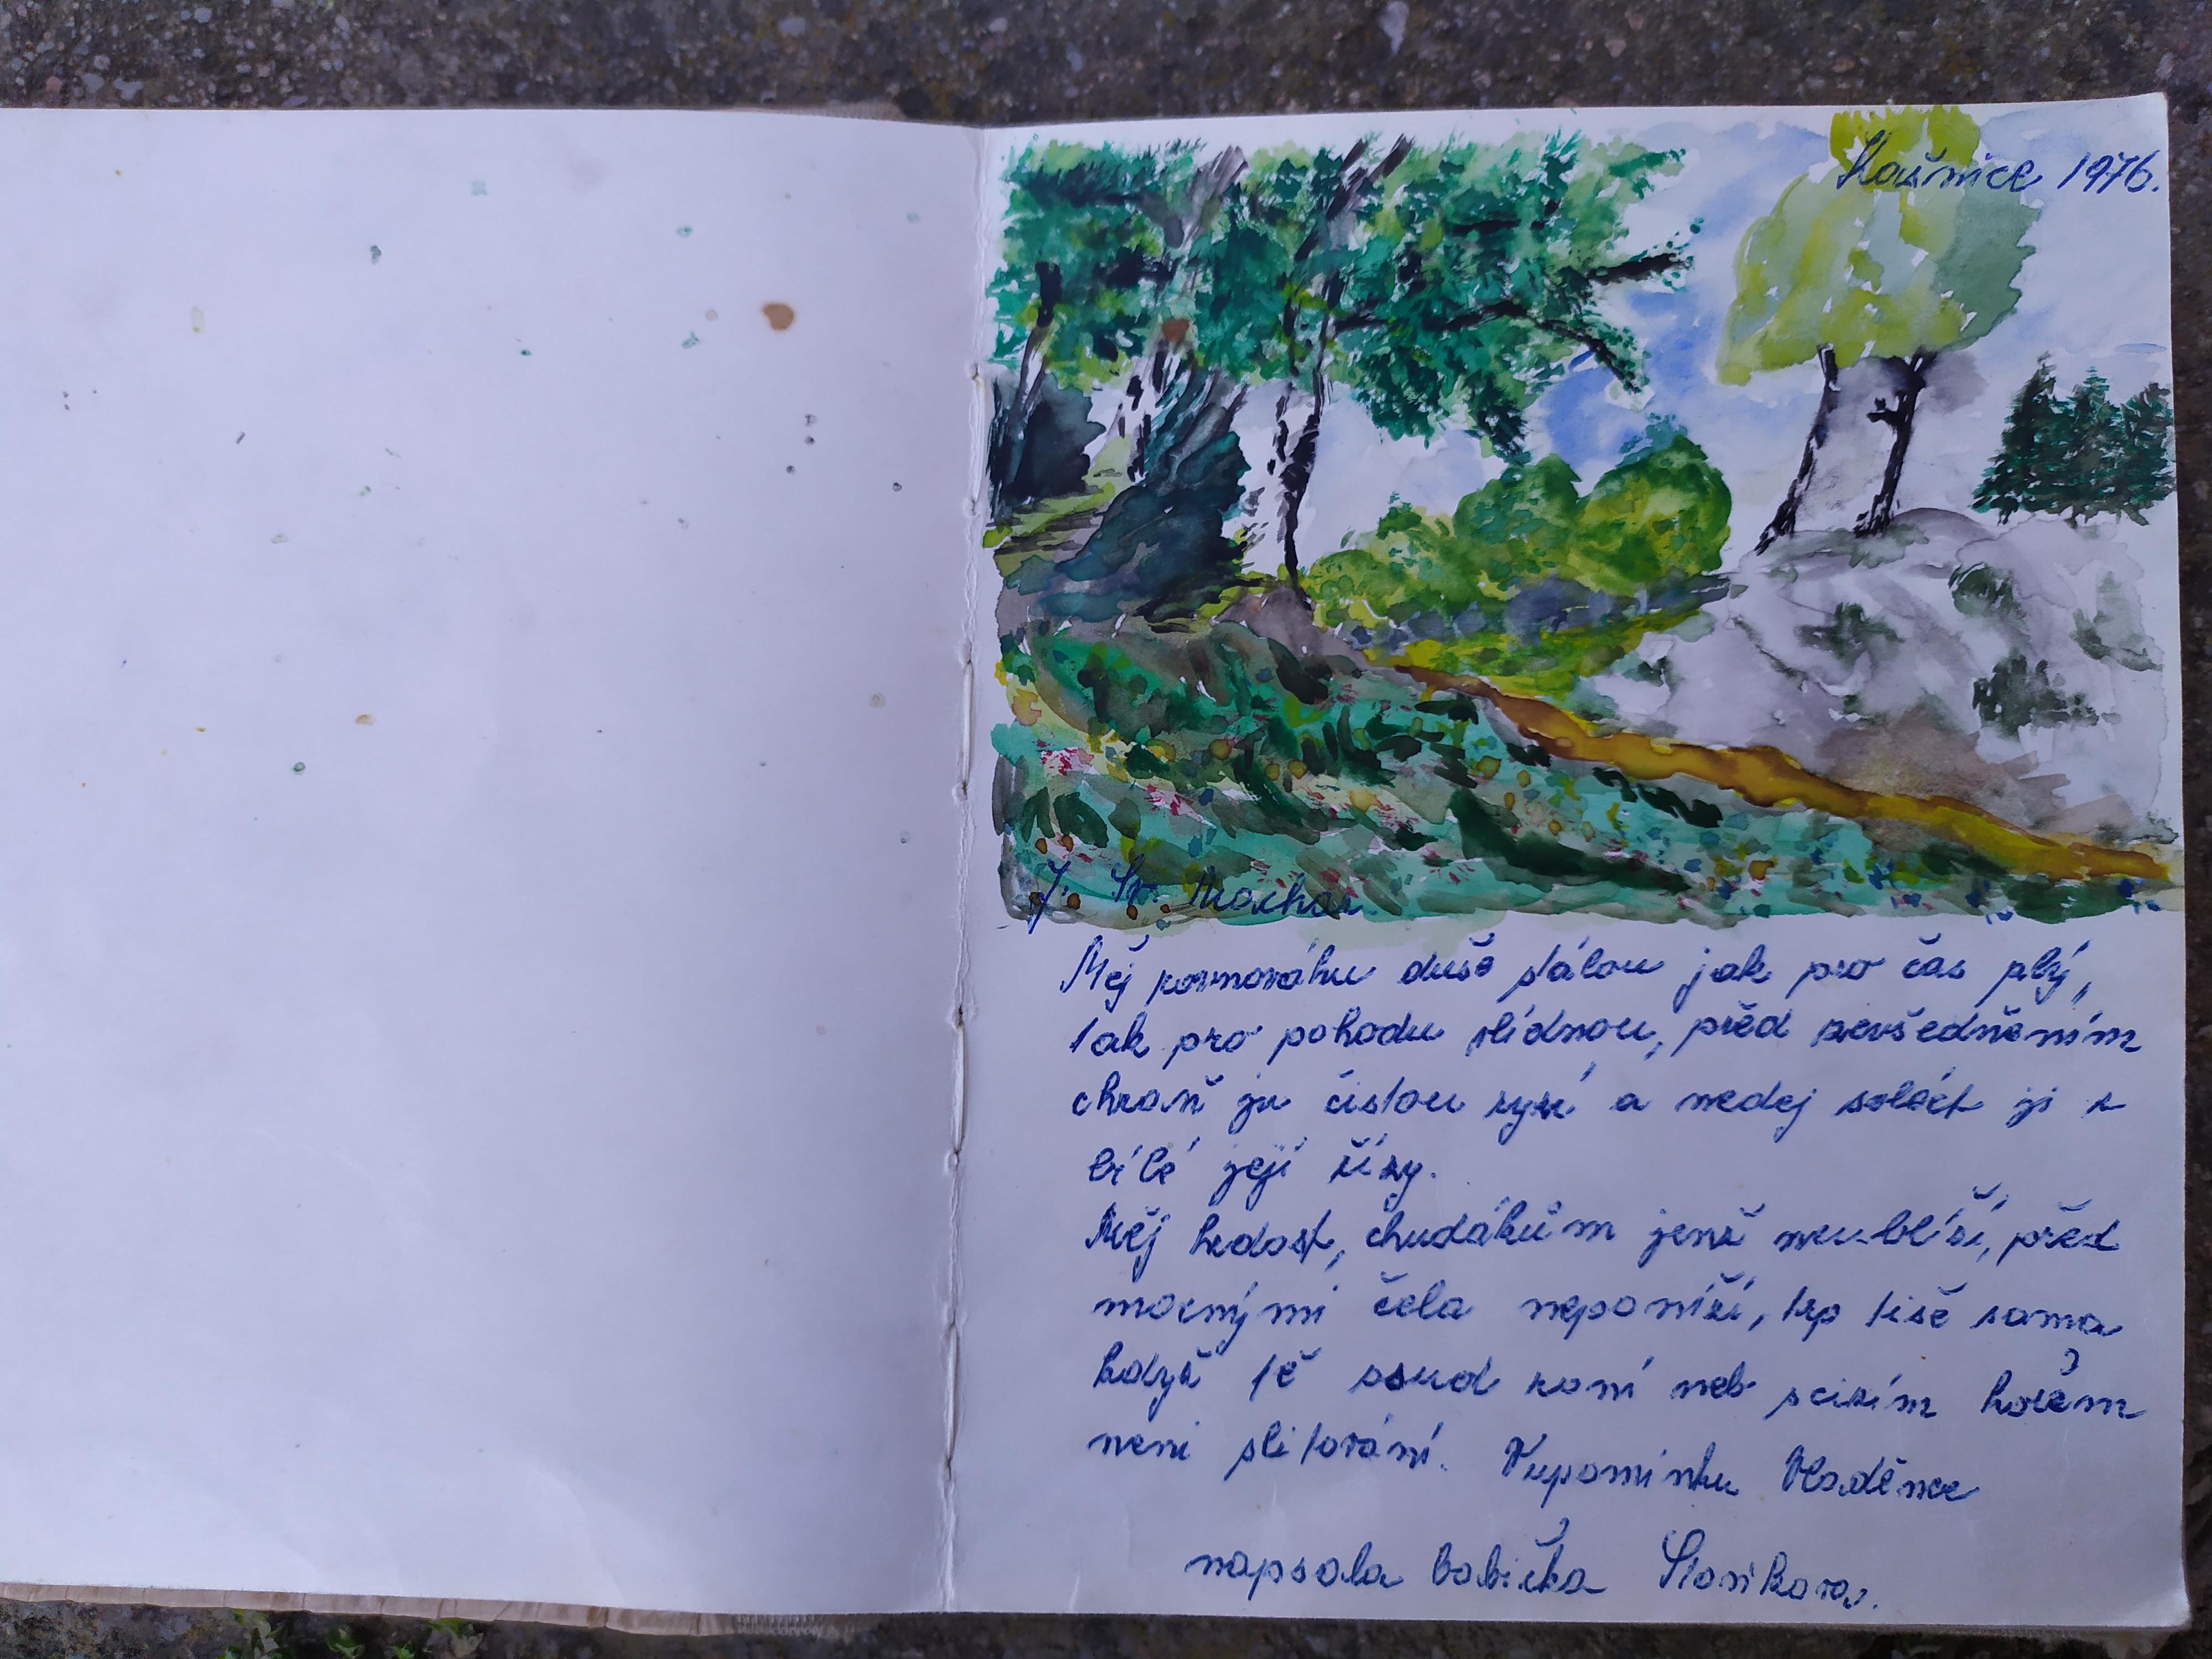 1976.
J. Sv. Machar.
Měj rovnováhu duše stálou jak pro čas zlý,
tak pro pohodu vlídnou, před zevšedněním
chraň ju čistou ryzí a nedej soléct ji z
bílé její řízy.
Měj hrdost, chudákům jenž neublíží, před
mocnými čela neponíží, trp tiše sama
když tě osud raní neb scizím hořem
neni slitování. Vupomínku Vladěnce
napsala babička